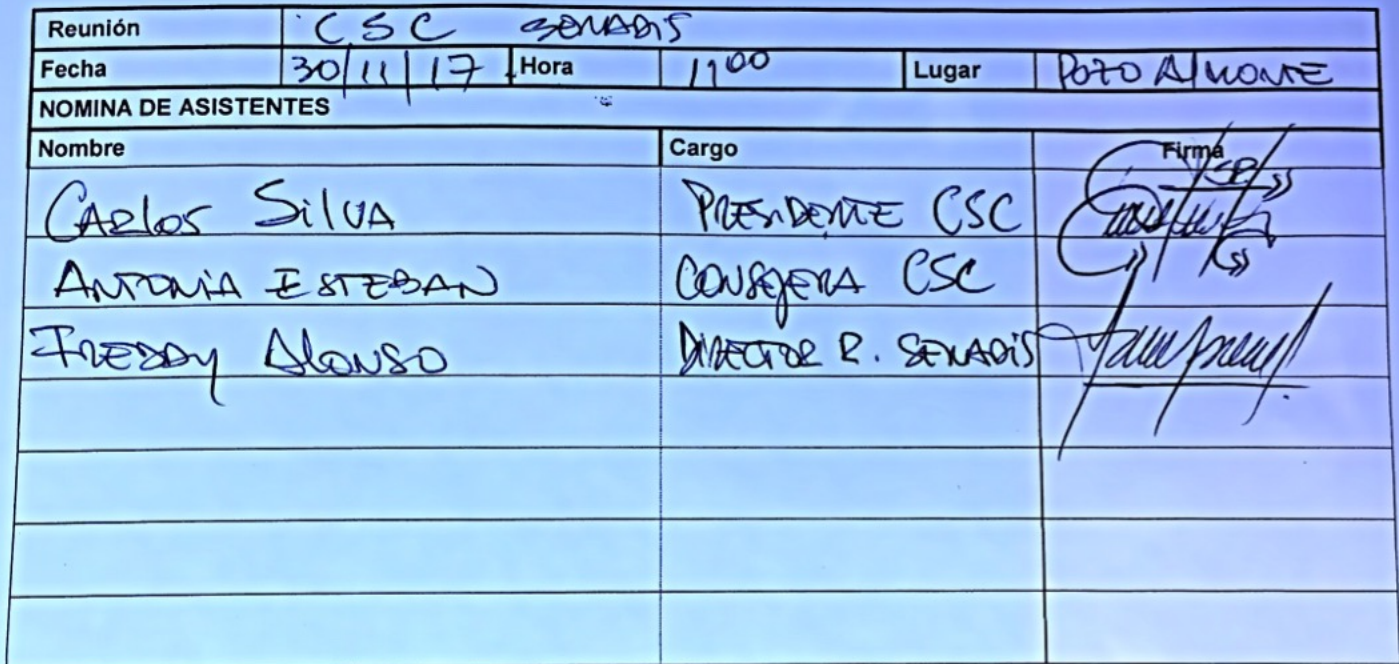 Reunión CSC SENADIS
Fecha 30/11/17 Hora 11 00 Lugar POZO AlMONTE
NOMINA DE ASISTENTES
Nombre Cargo Firma
CARlos SilVA PRESIDENTE CSC
ANTONiA ESTEBAN CONSEJERA CSC
FREDDY AlONSO DIRECTOR R. SENADIS